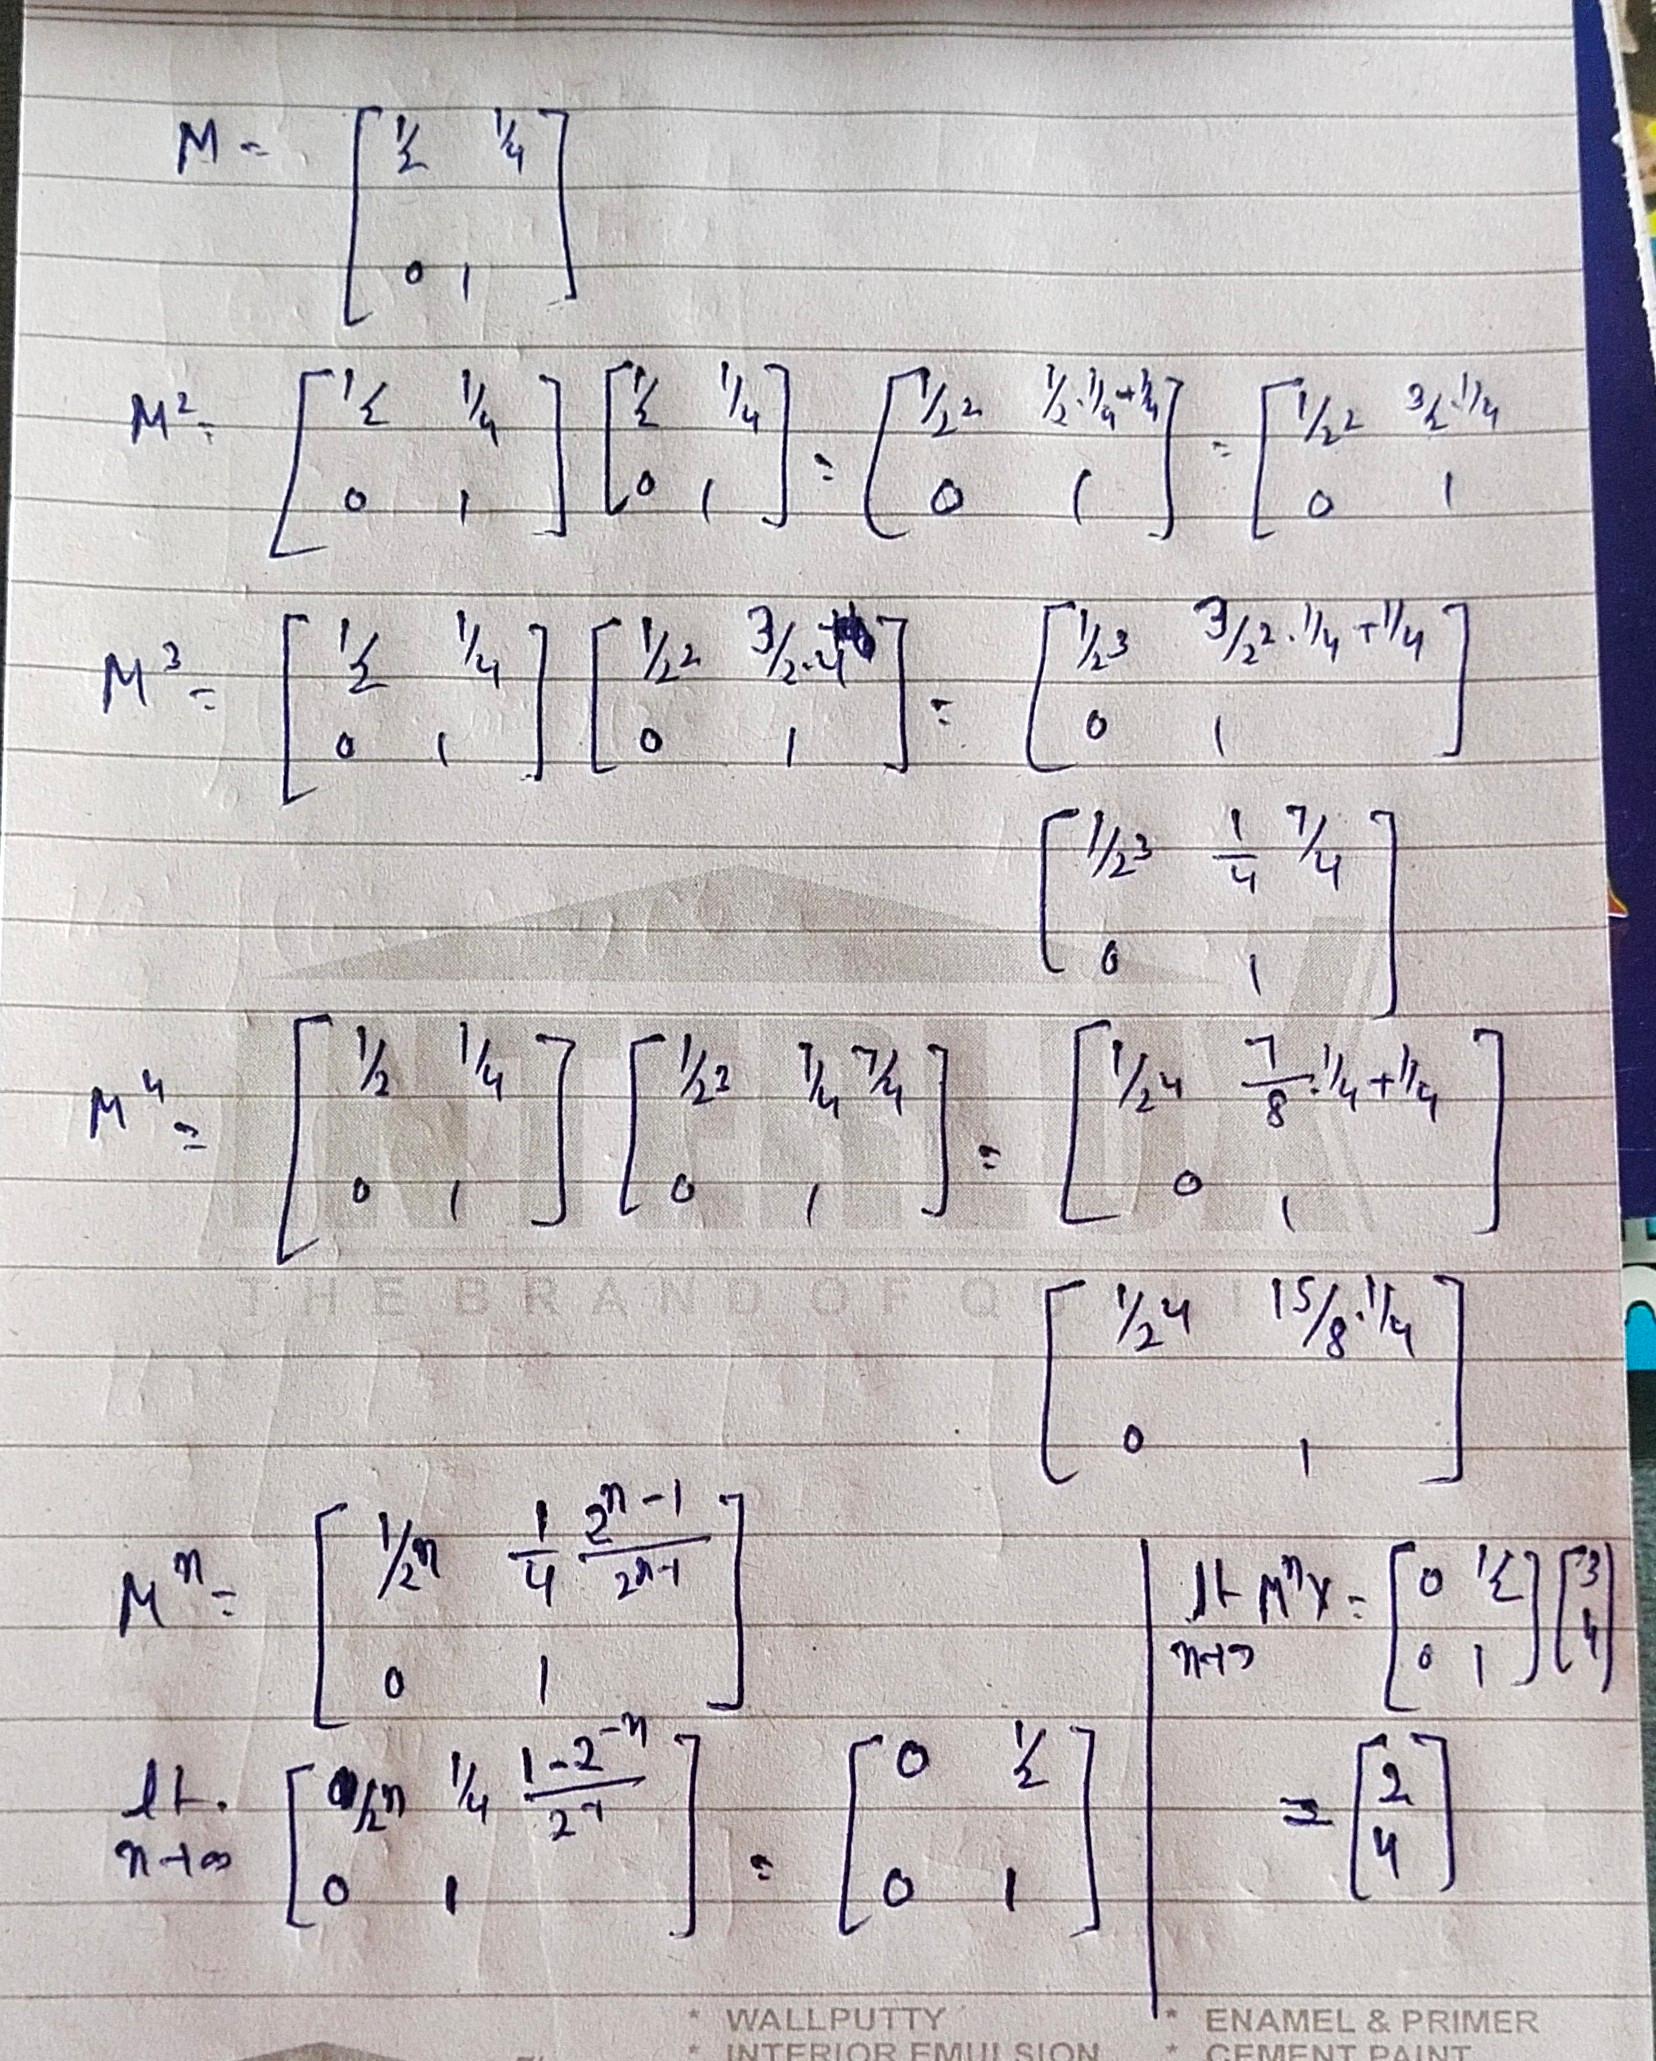 M = [ 1/2 1/4 ; 0 1 ]
M² = [ 1/2 1/4 ; 0 1 ] [ 1/2 1/4 ; 0 1 ] = [ 1/2² 1/2·1/4+1/4 ; 0 1 ] = [ 1/2² 3/2·1/4 ; 0 1 ]
M³ = [ 1/2 1/4 ; 0 1 ] [ 1/2² 3/2·4 ; 0 1 ] = [ 1/2³ 3/2²·1/4+1/4 ; 0 1 ]
[ 1/2³ 1/4 7/4 ; 0 1 ]
M⁴ = [ 1/2 1/4 ; 0 1 ] [ 1/2³ 1/4 7/4 ; 0 1 ] = [ 1/2⁴ 7/8·1/4+1/4 ; 0 1 ]
THE BRAND OF
[ 1/2⁴ 15/8·1/4 ; 0 1 ]
Mⁿ = [ 1/2ⁿ 1/4 (2ⁿ-1)/2ⁿ⁻¹ ; 0 1 ]
lt. n→∞ [ 1/2ⁿ 1/4 (1-2⁻ⁿ)/2⁻¹ ; 0 1 ] = [ 0 1/2 ; 0 1 ]
lt n→∞ MⁿX = [ 0 1/2 ; 0 1 ] [ 3 ; 4 ]
= [ 2 ; 4 ]
* WALLPUTTY * ENAMEL & PRIMER
* INTERIOR EMULSION * CEMENT PAINT